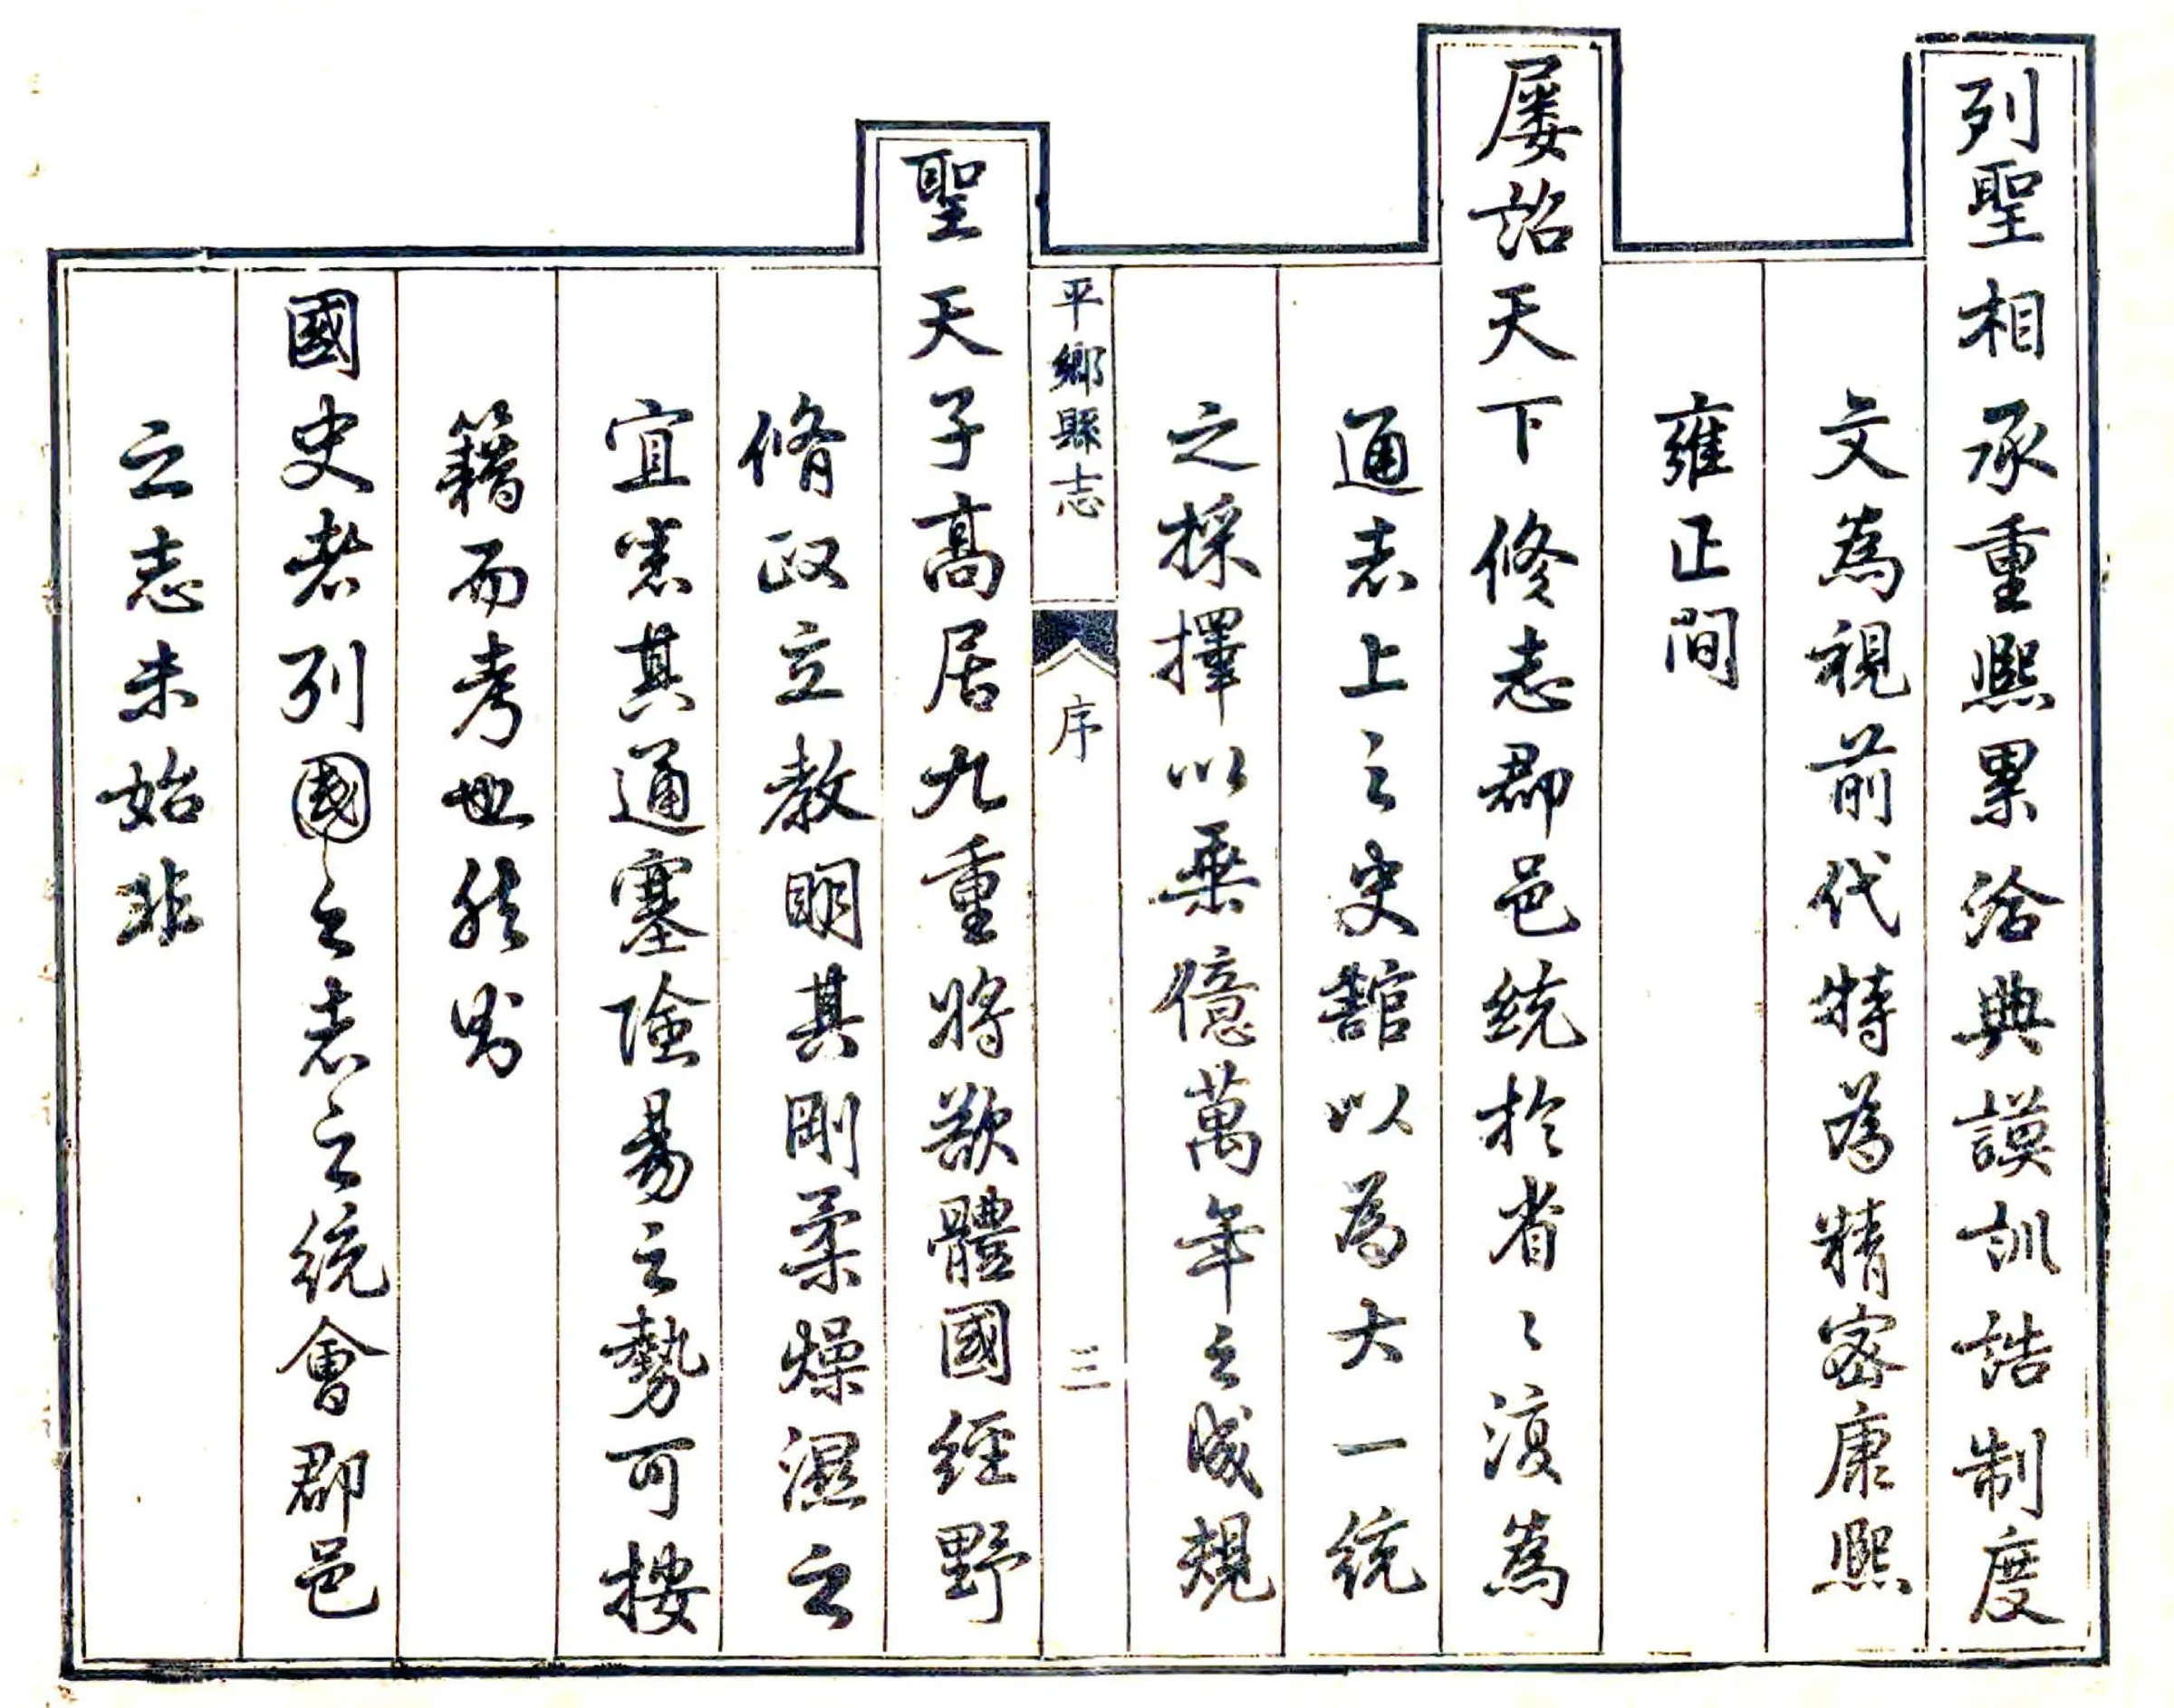 列聖相承重熙累洽典謨訓誥制度
文為視前代特為精密康熙
雍正間
屡詔天下修志郡邑統於省〻復為
通志上之史館以為大一統
之採擇以垂億萬年之成規
平鄉縣志
序
三
聖天子高居九重將欲體國經野
脩政立教明其剛柔燥濕之
宜悉其通塞險易之勢可按
籍而考也然則
國史者列國之志之統會郡邑
之志未始非